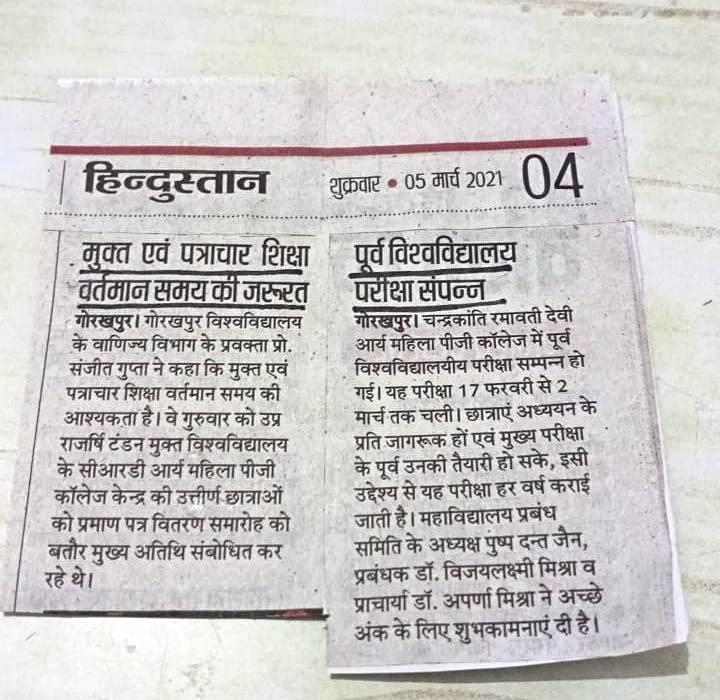 हिन्दुस्तान
शुक्रवार • 05 मार्च 2021
04
मुक्त एवं पत्राचार शिक्षा
वर्तमान समय की जरूरत
गोरखपुर। गोरखपुर विश्वविद्यालय
के वाणिज्य विभाग के प्रवक्ता प्रो.
संजीत गुप्ता ने कहा कि मुक्त एवं
पत्राचार शिक्षा वर्तमान समय की
आश्यकता है। वे गुरुवार को उप्र
राजर्षि टंडन मुक्त विश्वविद्यालय
के सीआरडी आर्य महिला पीजी
कॉलेज केन्द्र की उत्तीर्ण छात्राओं
को प्रमाण पत्र वितरण समारोह को
बतौर मुख्य अतिथि संबोधित कर
रहे थे।
पूर्व विश्वविद्यालय
परीक्षा संपन्न
गोरखपुर। चन्द्रकांति रमावती देवी
आर्य महिला पीजी कॉलेज में पूर्व
विश्वविद्यालयीय परीक्षा सम्पन्न हो
गई। यह परीक्षा 17 फरवरी से 2
मार्च तक चली। छात्राएं अध्ययन के
प्रति जागरूक हों एवं मुख्य परीक्षा
के पूर्व उनकी तैयारी हो सके, इसी
उद्देश्य से यह परीक्षा हर वर्ष कराई
जाती है। महाविद्यालय प्रबंध
समिति के अध्यक्ष पुष्प दन्त जैन,
प्रबंधक डॉ. विजयलक्ष्मी मिश्रा व
प्राचार्या डॉ. अपर्णा मिश्रा ने अच्छे
अंक के लिए शुभकामनाएं दी है।